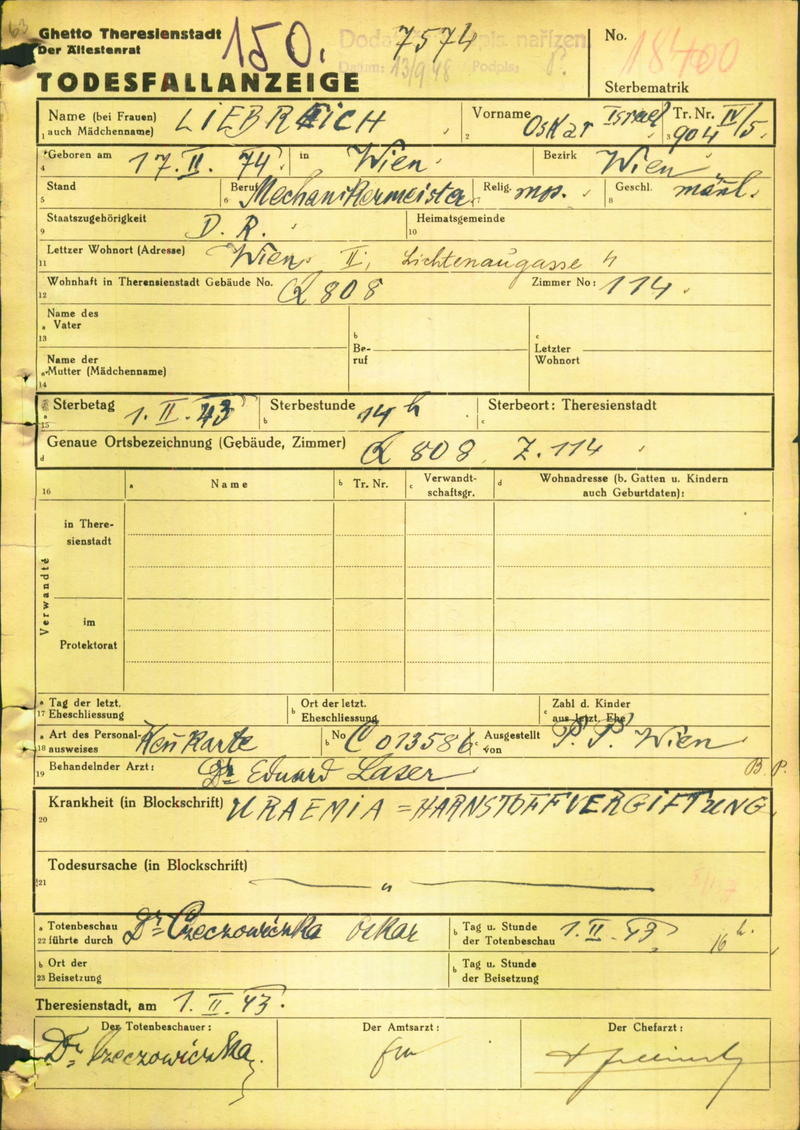 Ghetto Theresienstadt
Der Ältestenrat
150.
7574
No. 18400
Datum: 13/9 48 Podpis:
TODESFALLANZEIGE
Sterbematrik
Name (bei Frauen) LIEBREICH
1 auch Mädchenname)
Vorname Oskar Israel
2
Tr. Nr. IV/5
3 904
Geboren am 17. II. 74 in Wien
4
Bezirk Wien
Stand
5
Beruf Mechanikermeister
6
Relig. mos.
7
Geschl. männl.
8
Staatszugehörigkeit D. R.
9
Heimatsgemeinde
10
Lettzer Wohnort (Adresse) Wien II, Lichtenaugasse 4
11
Wohnhaft in Theresienstadt Gebäude No. Q 808 Zimmer No: 114
12
Name des
a Vater
13
b
Be-
ruf
c
Letzter
Wohnort
Name der
Mutter (Mädchenname)
14
Sterbetag 1. II. 43
15
Sterbestunde 14 h
b
Sterbeort: Theresienstadt
c
Genaue Ortsbezeichnung (Gebäude, Zimmer) Q 808 Z. 114
d
16
a Name
b Tr. Nr.
c Verwandt-
schaftsgr.
d Wohnadresse (b. Gatten u. Kindern
auch Geburtdaten):
Verwandte
in There-
sienstadt
im
Protektorat
a Tag der letzt.
17 Eheschliessung
b Ort der letzt.
Eheschliessung
c Zahl d. Kinder
aus letzt. Ehe
a Art des Personal-
18 ausweises Kennkarte
b No C 013586
c Ausgestellt
von P. P. Wien
Behandelnder Arzt: Dr Eduard Laser B. P.
19
Krankheit (in Blockschrift) URAEMIA = HARNSTOFFVERGIFTUNG
20
Todesursache (in Blockschrift)
21 — " —
a Totenbeschau
22 führte durch Dr. Czeczowiczka Oskar
b Tag u. Stunde
der Totenbeschau 1. II. 43 16 h.
b Ort der
23 Beisetzung
b Tag u. Stunde
der Beisetzung
Theresienstadt, am 1. II. 43.
Der Totenbeschauer:
Der Amtsarzt:
Der Chefarzt:
Dr. Czeczowiczka